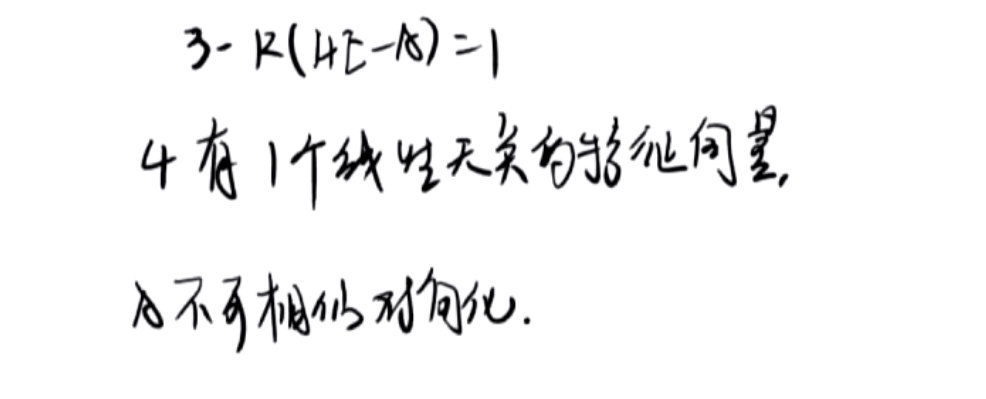 3-R(4E-A)=1
4有1个线性无关的特征向量.
A不可相似对角化.